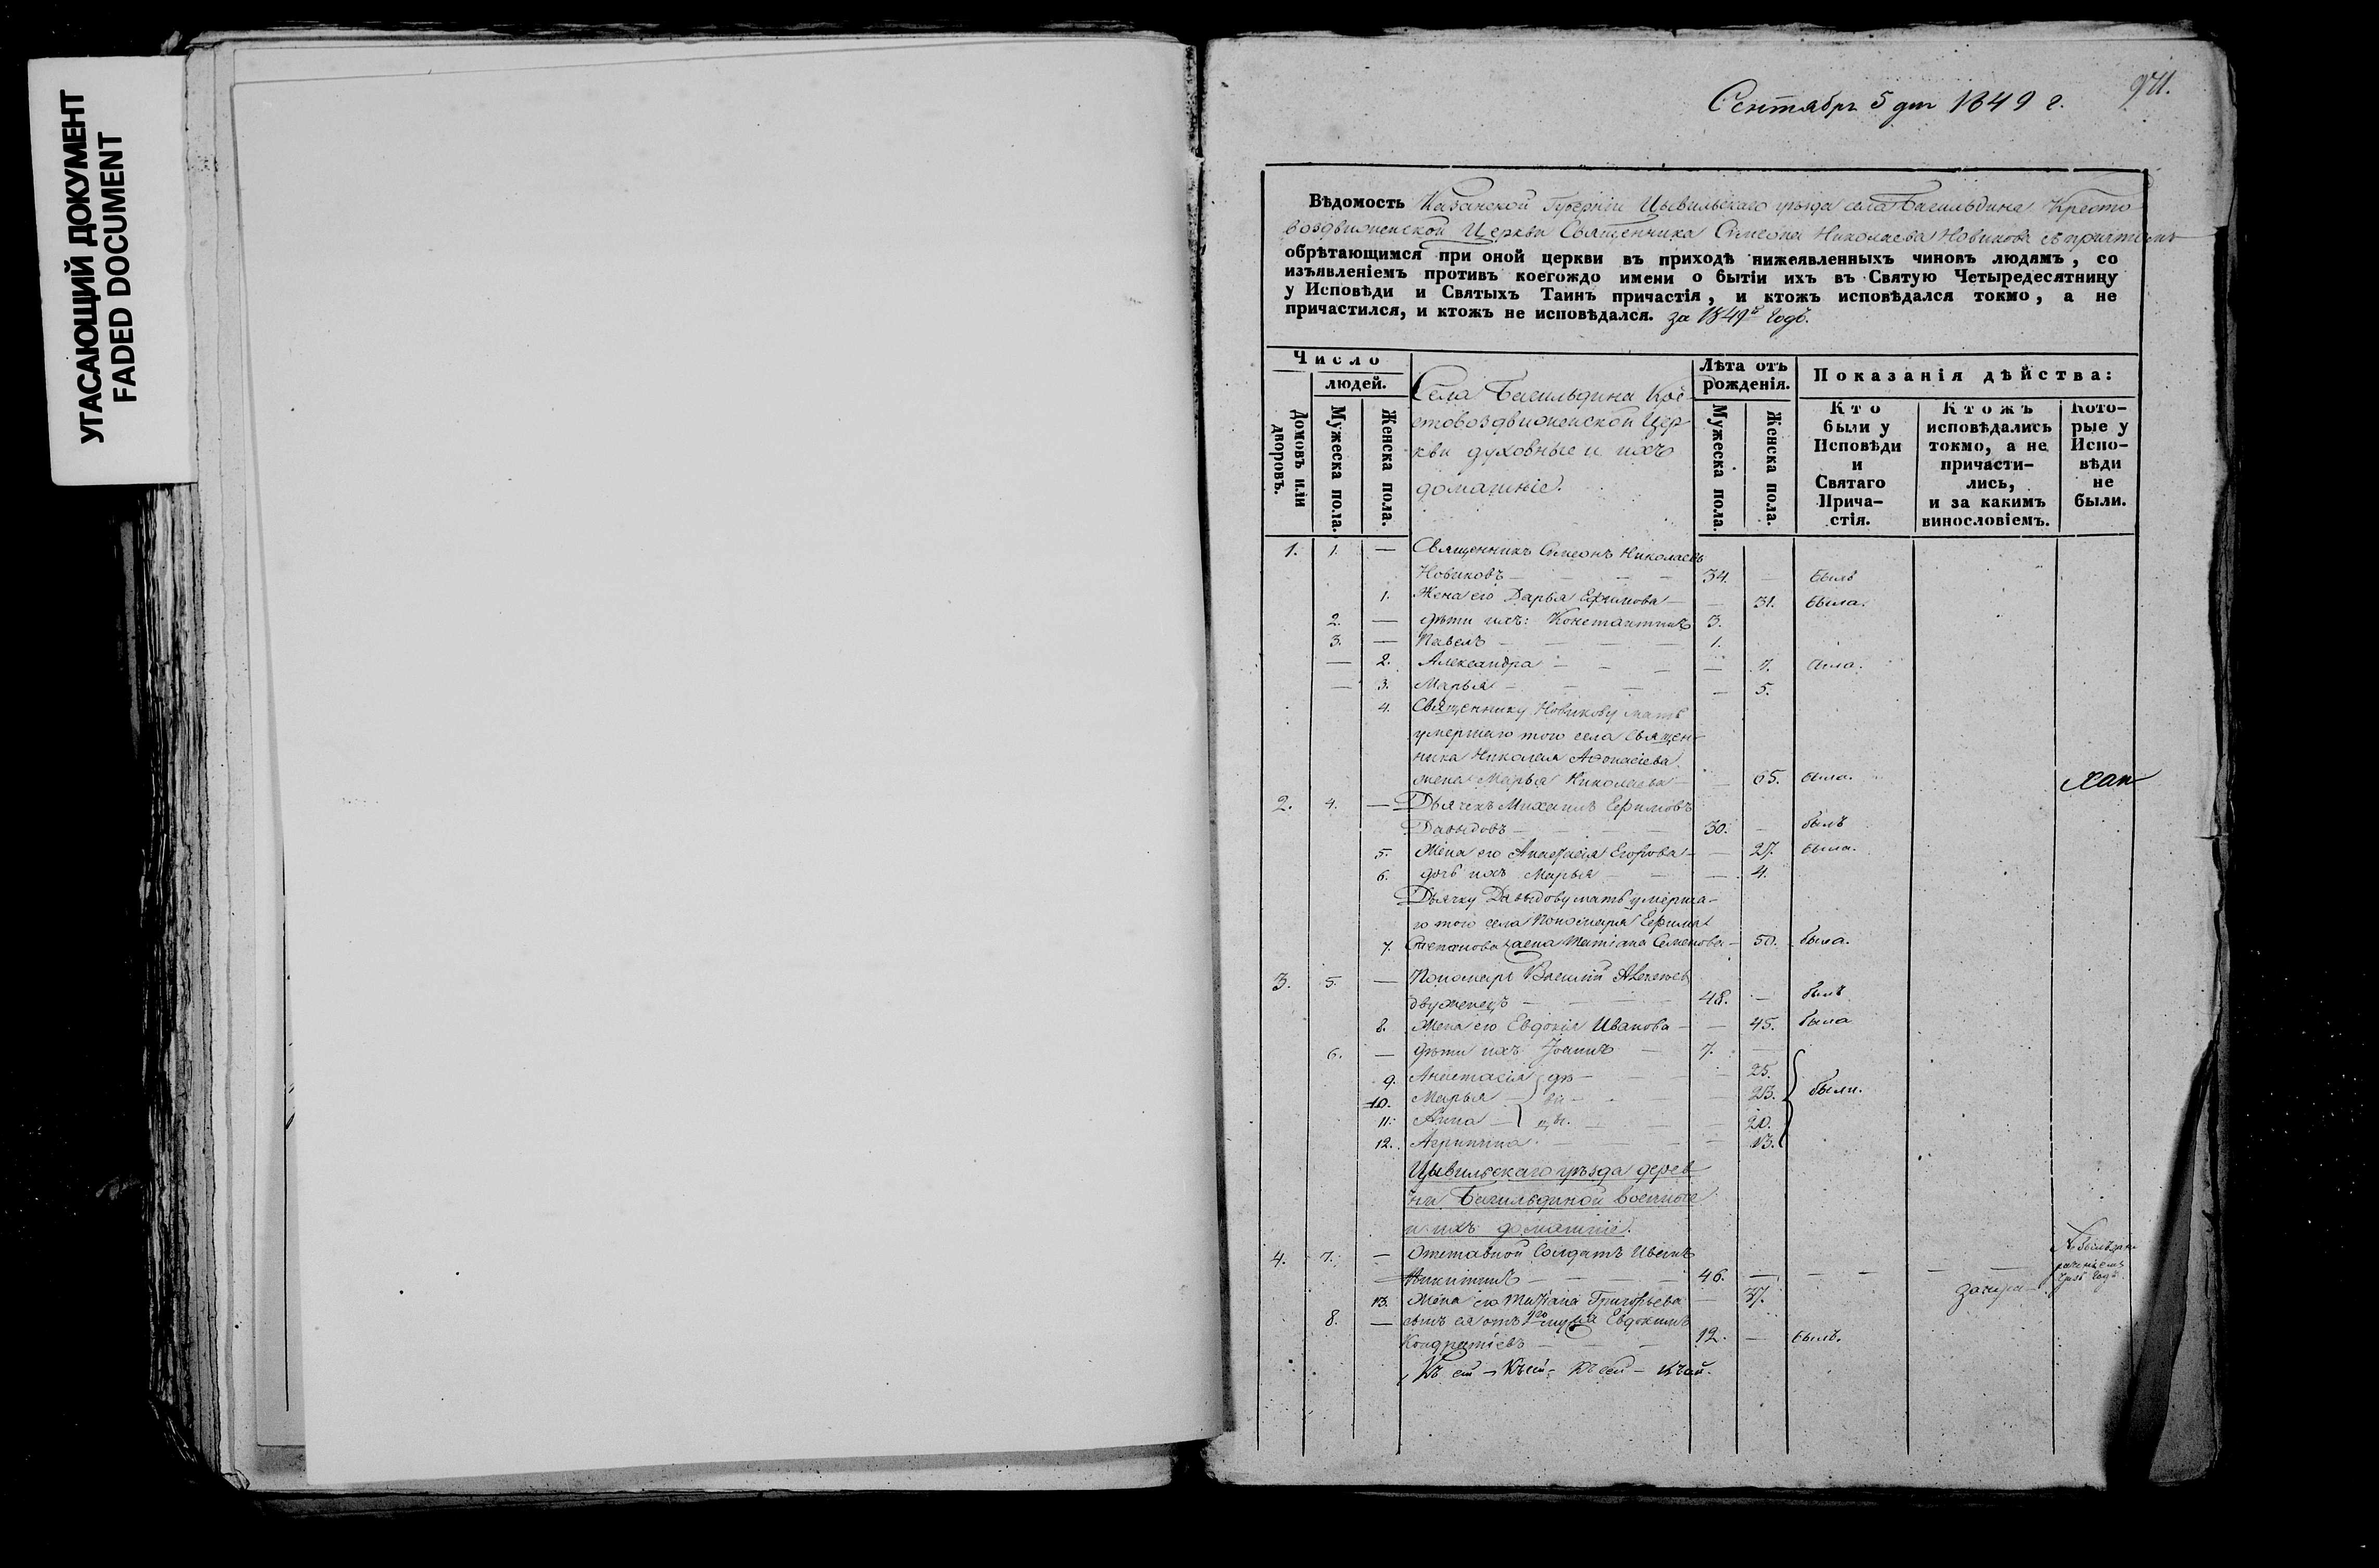 УГАСАЮЩИЙ ДОКУМЕНТ
FADED DOCUMENT
Сентябрь 5 дня 1849 г.
971.
Вѣдомость Казанской Губерніи Цывильскаго уѣзда села Бигильдина Кресто
воздвиженской Церкви Священника Симеона Николаева Новикова съ причтомъ
обрѣтающимся при оной церкви въ приходѣ нижеявленныхъ чиновъ людямъ, со
изъявленіемъ противъ коегождо имени о бытіи ихъ въ Святую Четыредесятницу
у Исповѣди и Святыхъ Таинъ причастія, и ктожъ исповѣдался токмо, а не
причастился, и ктожъ не исповѣдался. за 1849й годъ.
Число
людей.
Домовъ или дворовъ.
Мужеска пола.
Женска пола.
Села Бигильдина Кре-
стовоздвиженской Цер
кви духовные и ихъ
домашніе.
Лѣта отъ
рожденія.
Мужеска пола.
Женска пола.
Показанія дѣйства:
Кто
были у
Исповѣди
и
Святаго
Прича-
стія.
Ктожъ
исповѣдались
токмо, а не
причасти-
лись,
и за какимъ
винословіемъ.
Кото-
рые у
Испо-
вѣди
не
были.
1. 1. — Священникъ Симеонъ Николаевъ
Новиковъ — 34. — былъ
1. Жена его Дарья Ефимова — — 31. была.
2. — дѣти ихъ: Константинъ 3.
3. — Павелъ — 1.
— 2. Александра — — 7. была.
— 3. Марья — — 5.
4. Священнику Новикову мать
умершаго того села Священ-
ника Николая Афонасіева
жена Марья Николаева — — 65. была.
2. 4. — Дьячекъ Михаилъ Ефимовъ
Давыдовъ — 30. — былъ
5. Жена его Анастасія Егорова — — 27. была.
6. дочь ихъ Марья — — 4.
Дьячку Давыдову мать умерша-
го того села Пономаря Ефима
7. Степанова жена Татіана Семенова — 50. была.
3. 5. — Пономарь Василій Алексеев
двуженецъ — 48. — былъ
8. Жена его Евдокія Иванова — — 45. была
6. — дѣти ихъ Іоаннъ — 7. —
9. Анастасія дѣ — — 25.
10. Марья — ви — — 23. были.
11. Анна — цы. — — 20.
12. Агрипина. — — 13.
Цывильскаго уѣзда дерев
ни Бигильдиной военные
и ихъ домашніе.
4. 7. — Отставной Солдатъ Иванъ
Никитинъ — 46. —
13. Жена его Татіана Григорьева — 37.
8. — сынъ ея отъ 1го мужа Евдокимъ
Кондратіевъ — 12. — былъ.